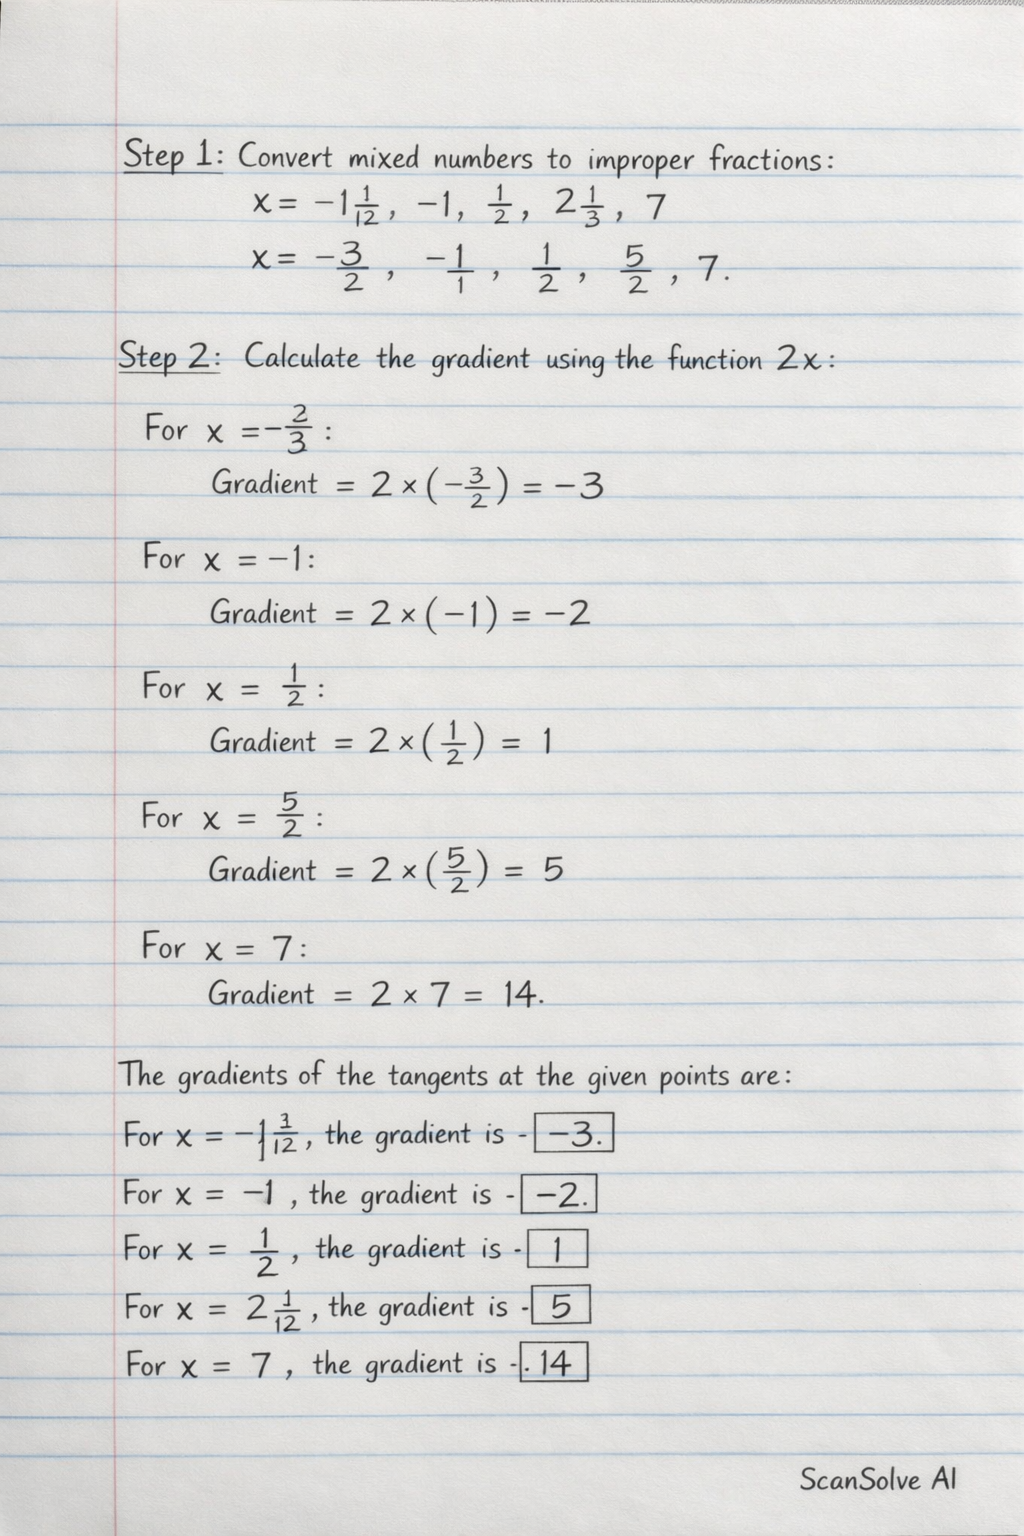 Step 1: Convert mixed numbers to improper fractions:
x = −1 1/12, −1, 1/2, 2 1/3, 7
x = −3/2, −1/1, 1/2, 5/2, 7.
Step 2: Calculate the gradient using the function 2x:
For x = −2/3:
Gradient = 2 × (−3/2) = −3
For x = −1:
Gradient = 2 × (−1) = −2
For x = 1/2:
Gradient = 2 × (1/2) = 1
For x = 5/2:
Gradient = 2 × (5/2) = 5
For x = 7:
Gradient = 2 × 7 = 14.
The gradients of the tangents at the given points are:
For x = −1 /12, the gradient is - −3.
For x = −1, the gradient is - −2.
For x = 1/2, the gradient is - 1
For x = 2 1/12, the gradient is - 5
For x = 7, the gradient is - .14
ScanSolve AI